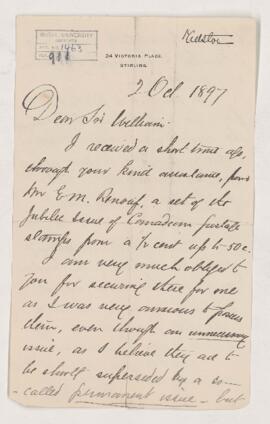 Kidston
1463
24 VICTORIA PLACE,
STIRLING.
2 Oct 1897
Dear Sir William
I received a short time ago,
through your kind assistance, from
Mr E. M. Renouf, a set of the
Jubilee Issue of Canadian Postage
Stamps from a ½ cent up to 50c.
I am very much obliged to
you for securing these for me
as I was very anxious to possess
them, even though an unnecessary
issue, as I believe they are to
be shortly superseded by a so-
called permanent issue - but